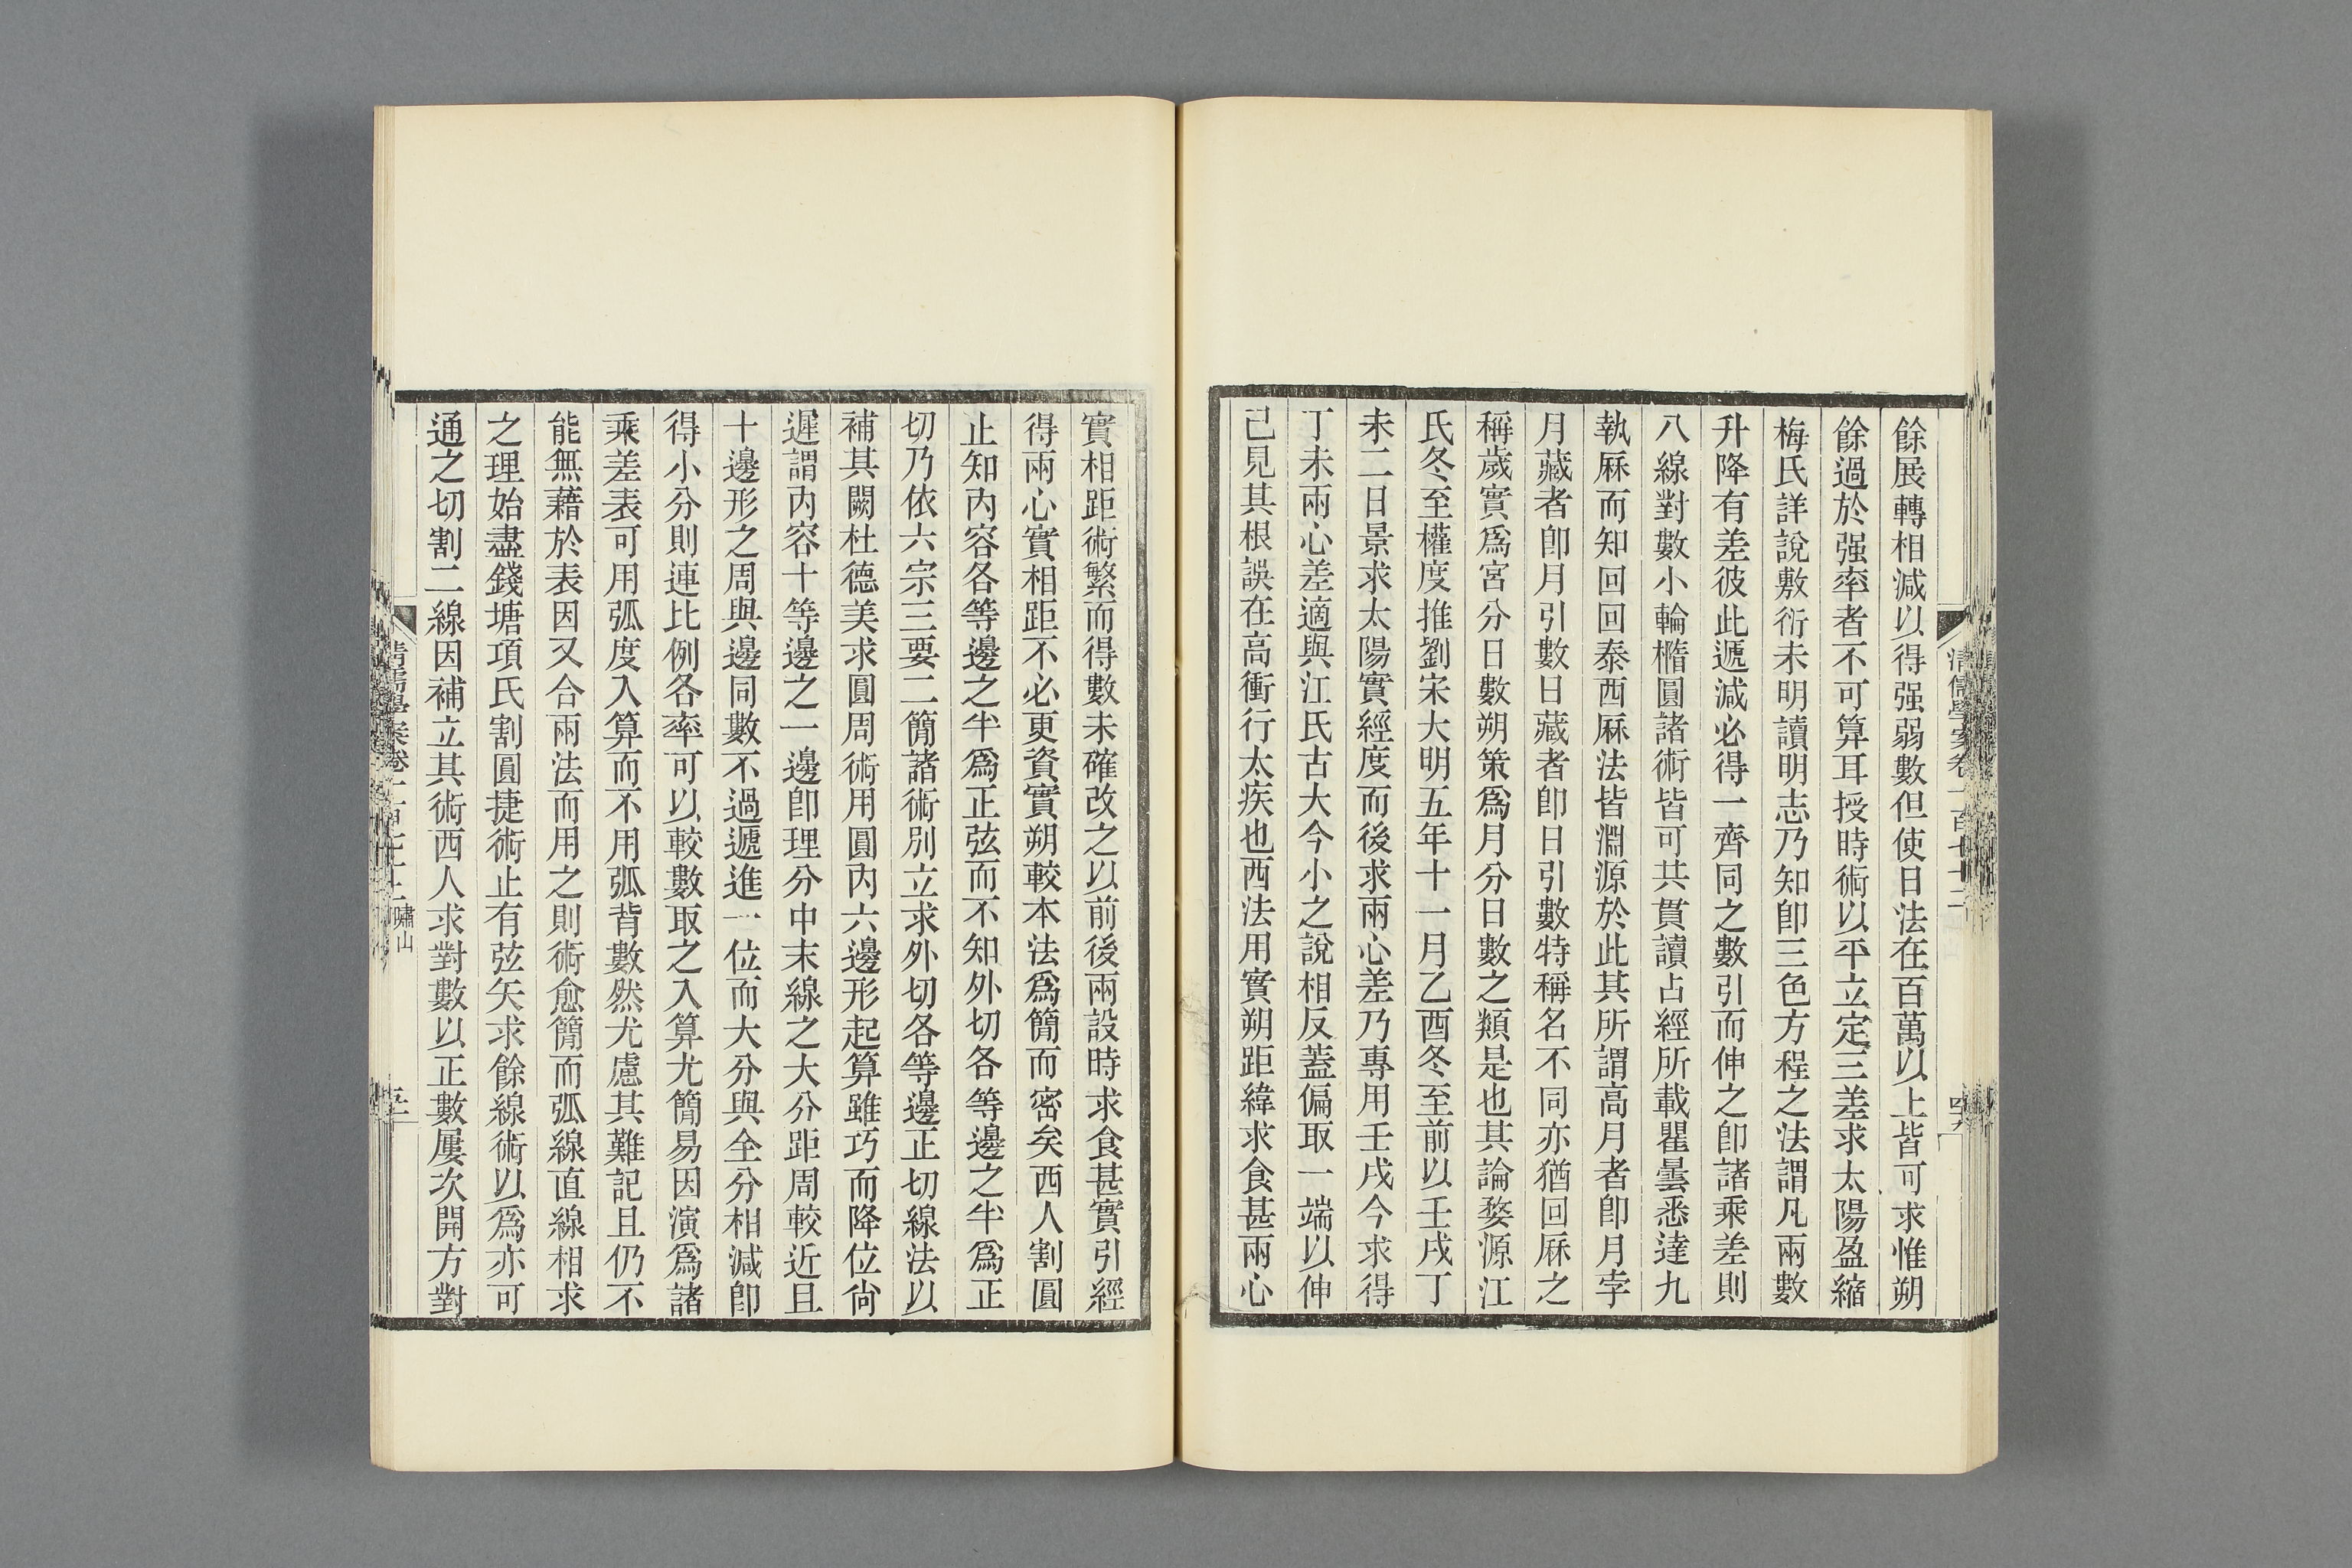 餘展轉相減以得强弱數但使日法在百萬以上皆可求惟朔
餘過於强率者不可算耳授時術以平立定三差求太陽盈縮
梅氏詳說敷衍未明讀明志乃知卽三色方程之法謂凡兩數
升降有差彼此遞減必得一齊同之數引而伸之卽諸乘差則
八線對數小輪橢圓諸術皆可共貫讀占經所載瞿曇悉達九
執厤而知回回泰西厤法皆淵源於此其所謂高月者卽月孛
月藏者卽月引數日藏者卽日引數特稱名不同亦猶回厤之
稱歲實爲宮分日數朔策爲月分日數之類是也其論婺源江
氏冬至權度推劉宋大明五年十一月乙酉冬至前以壬戌丁
未二日景求太陽實經度而後求兩心差乃專用壬戌今求得
丁未兩心差適與江氏古大今小之說相反蓋偏取一端以伸
己見其根誤在高衝行太疾也西法用實朔距緯求食甚兩心
實相距術繁而得數未確改之以前後兩設時求食甚實引經
得兩心實相距不必更資實朔較本法爲簡而密矣西人割圓
止知內容各等邊之半爲正弦而不知外切各等邊之半爲正
切乃依六宗三要二簡諸術別立求外切各等邊正切線法以
補其闕杜德美求圓周術用圓內六邊形起算雖巧而降位尙
遲謂內容十等邊之一邊卽理分中末線之大分距周較近且
十邊形之周與邊同數不過遞進一位而大分與全分相減卽
得小分則連比例各率可以較數取之入算尤簡易因演爲諸
乘差表可用弧度入算而不用弧背數然尤慮其難記且仍不
能無藉於表因又合兩法而用之則術愈簡而弧線直線相求
之理始盡錢塘項氏割圓捷術止有弦矢求餘線術以爲亦可
通之切割二線因補立其術西人求對數以正數屢次開方對
嘯山